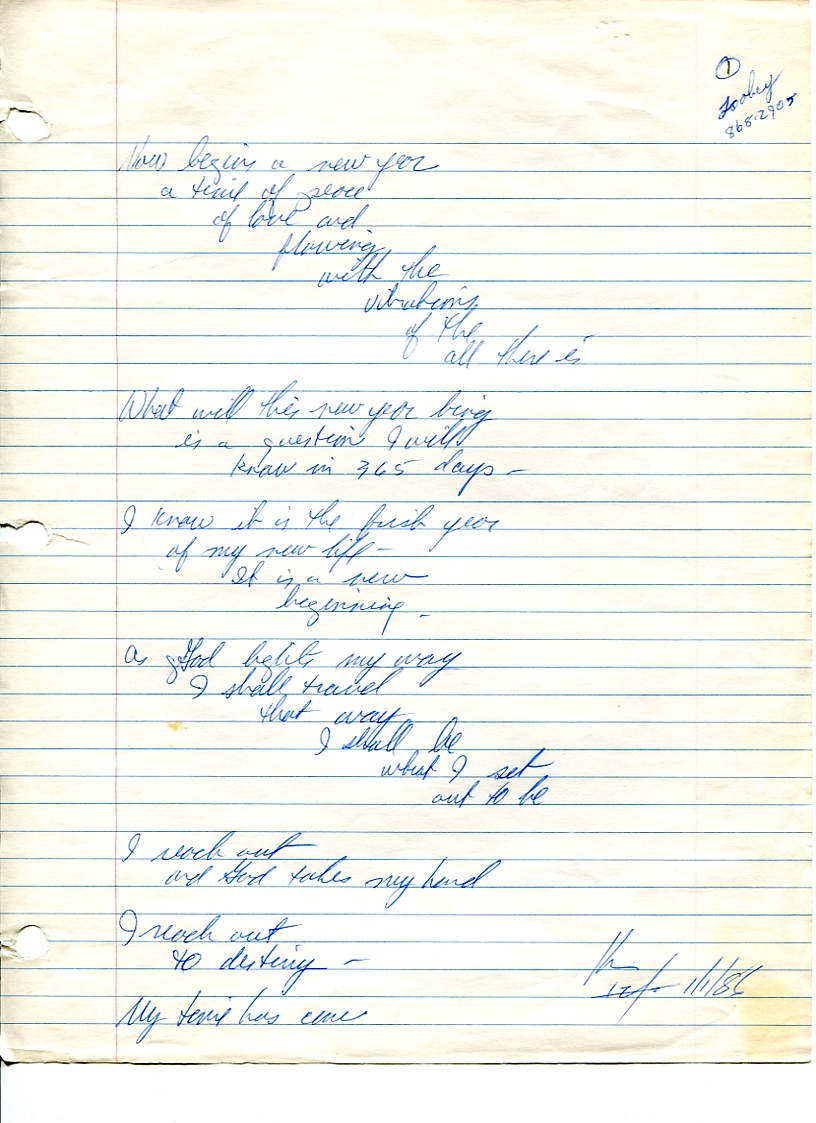 1
868-2905
Now begins a new year
a time of peace
of love and
flowing
with the
vibrations
of the
all there is
What will this new year bring
is a question I will
know in 365 days -
I know it is the first year
of my new life -
It is a new
beginning -
As God lights my way
I shall travel
that way
I shall be
what I set
out to be
I reach out
and God takes my hand
I reach out
to destiny -
My time has come
1/1/86